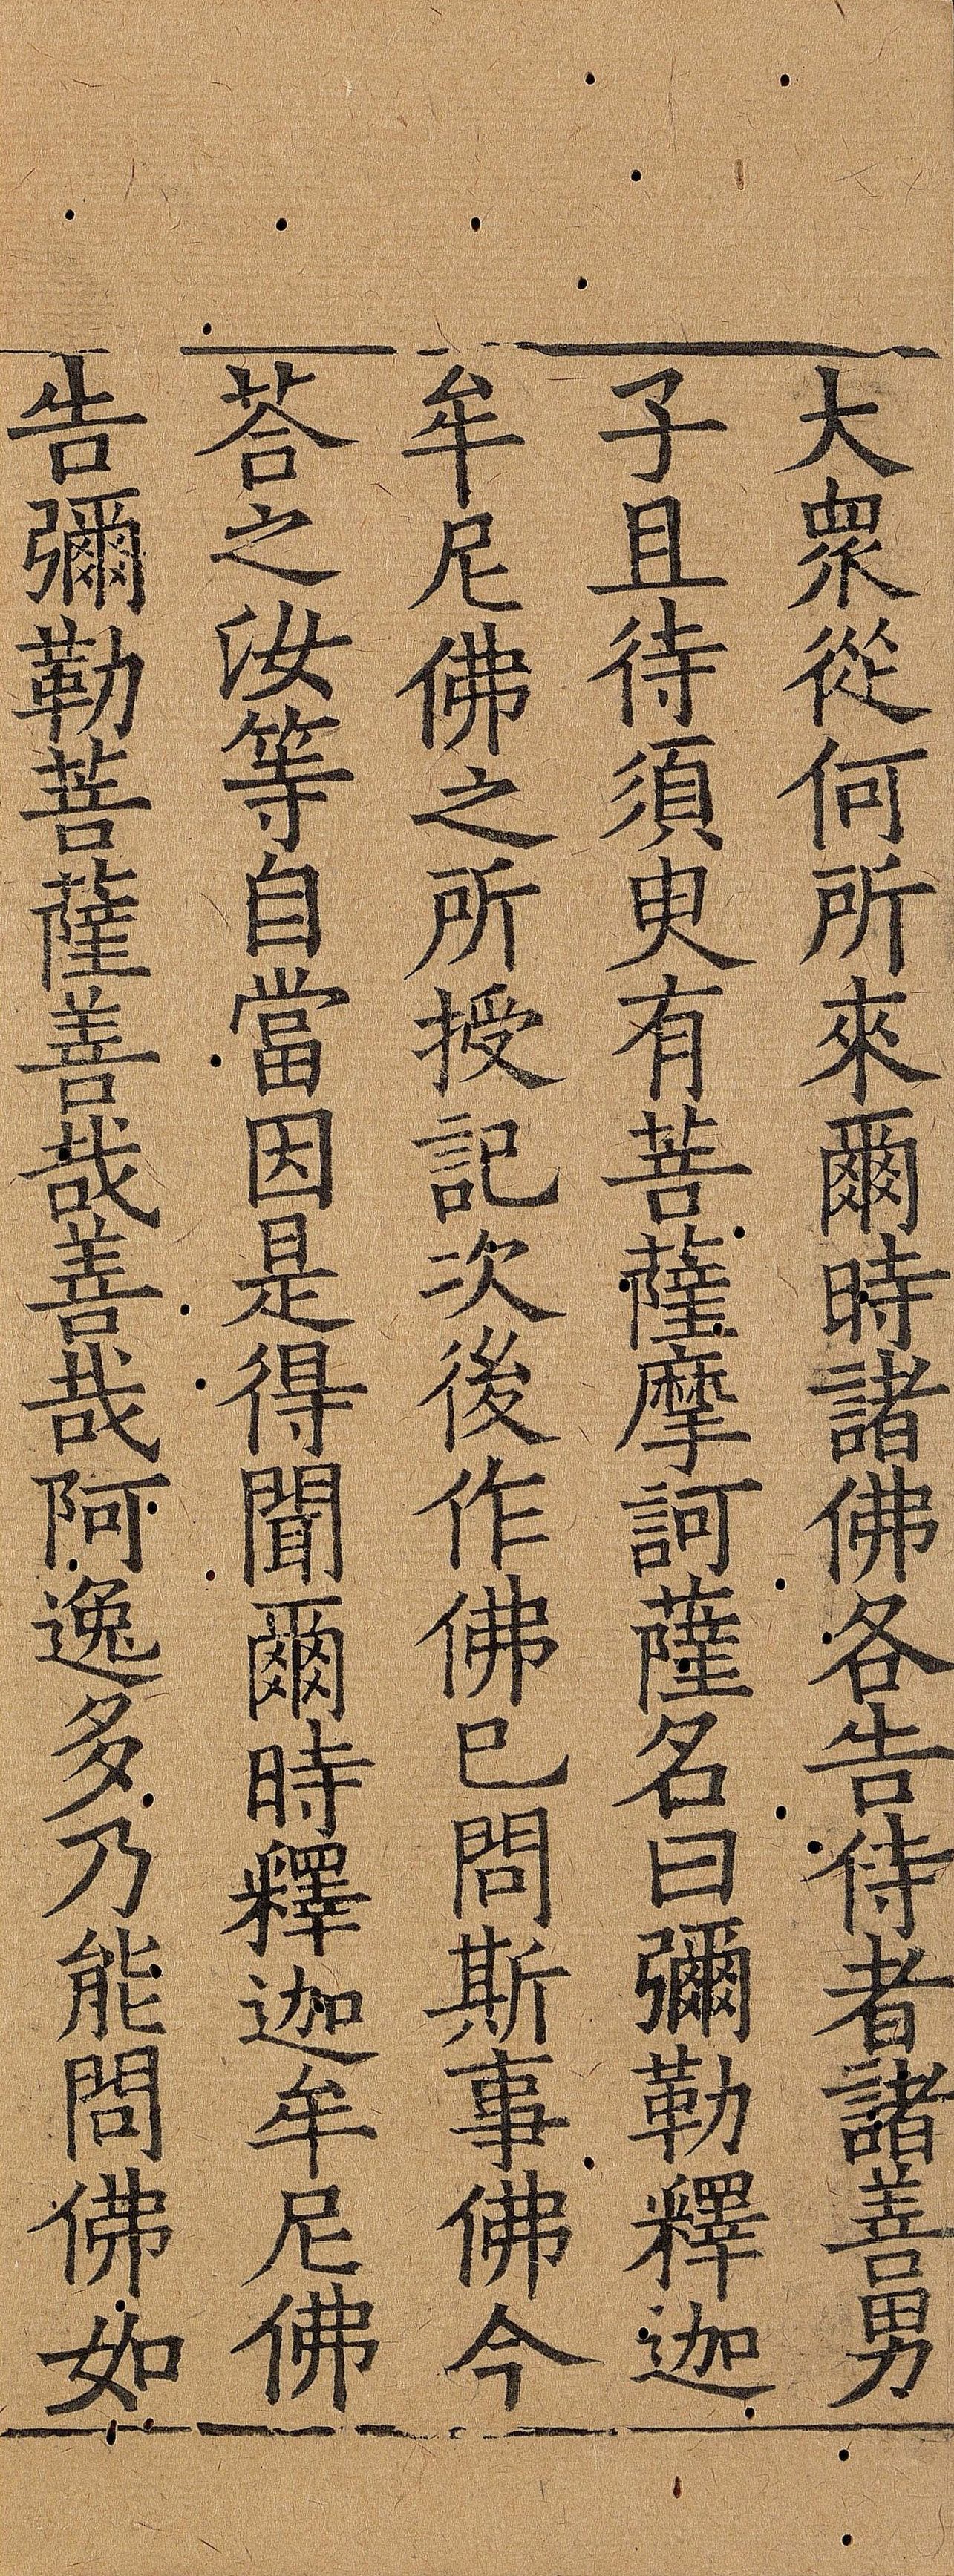 大衆從何所來爾時諸佛各告侍者諸善男
子且待須臾有菩薩摩訶薩名曰彌勒釋迦
牟尼佛之所授記次後作佛已問斯事佛今
荅之汝等自當因是得聞爾時釋迦牟尼佛
告彌勒菩薩善哉善哉阿逸多乃能問佛如